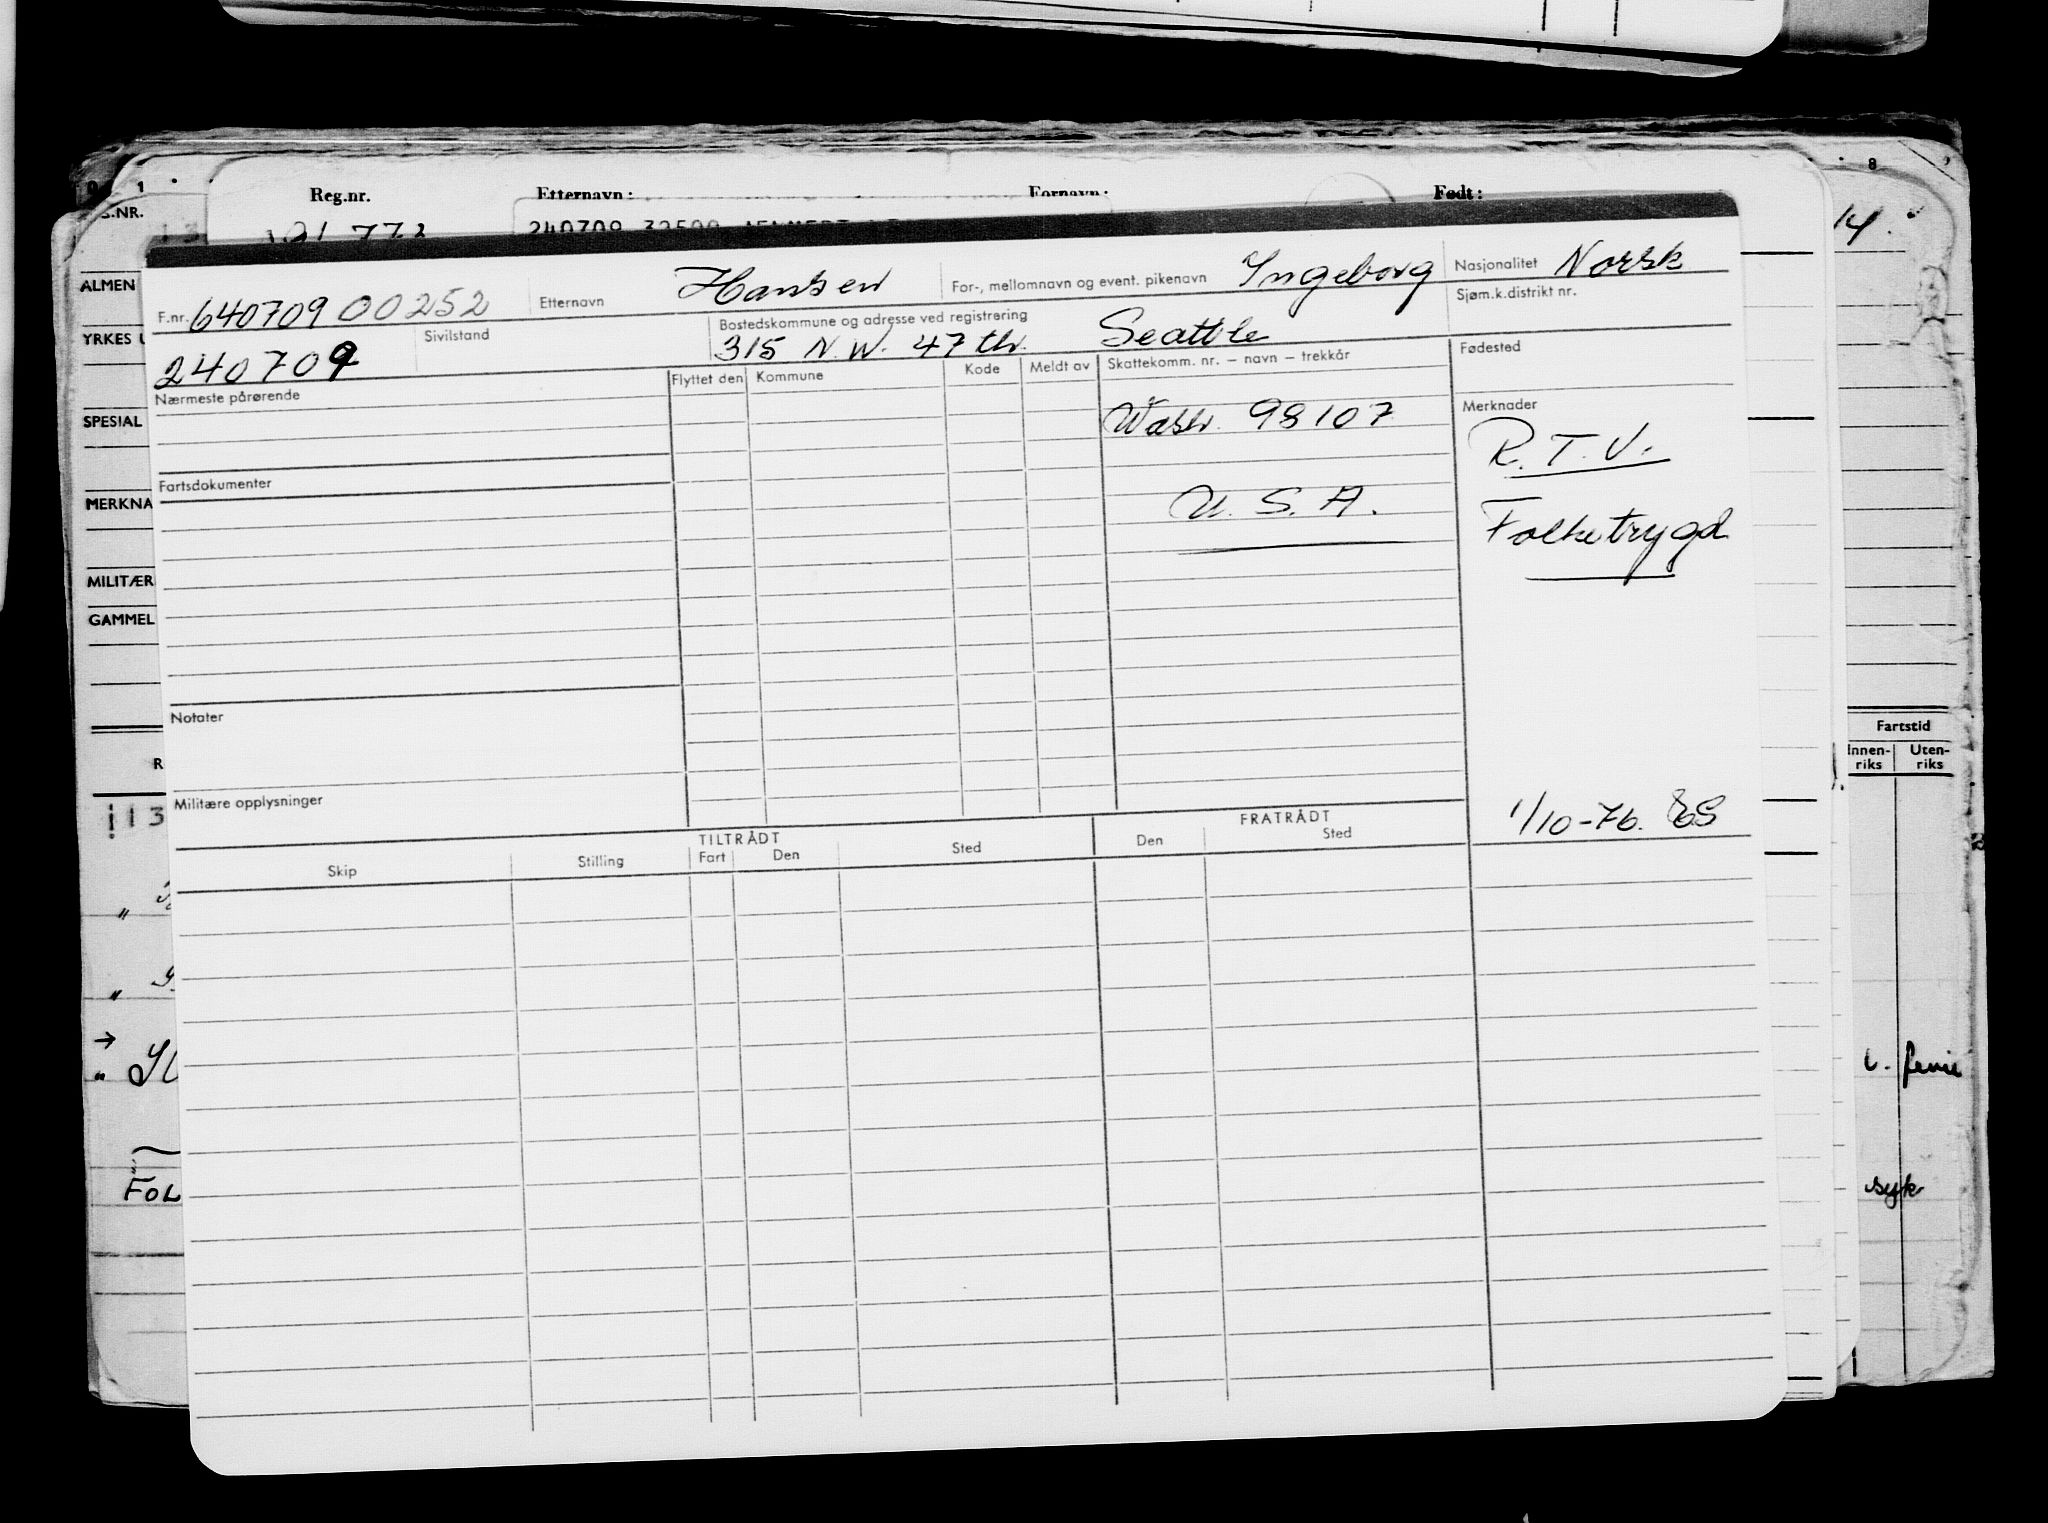 Reg.nr. Etternavn: Fornavn: Født:
121 773
240709
8
14.
ALMEN
YRKES
SPESIAL
MERKNA
MILITÆR
GAMMEL
Fartstid
Innen-riks Uten-riks
FOL
syk
F.nr. 64070900252 Etternavn Hansen For-, mellomnavn og event. pikenavn Ingeborg Nasjonalitet Norsk
240709 Sivilstand Bostedskommune og adresse ved registrering Sjøm.k.distrikt nr.
315 N.W. 47 th. Seattle
Nærmeste pårørende Flyttet den Kommune Kode Meldt av Skattekomm. nr. – navn – trekkår Fødested
Wash. 98107 Merknader
R.T.V.
Fartsdokumenter
U.S.A. Folketrygd
Notater
Militære opplysninger
1/10-76.
TILTRÅDT FRATRÅDT
Skip Stilling Fart Den Sted Den Sted